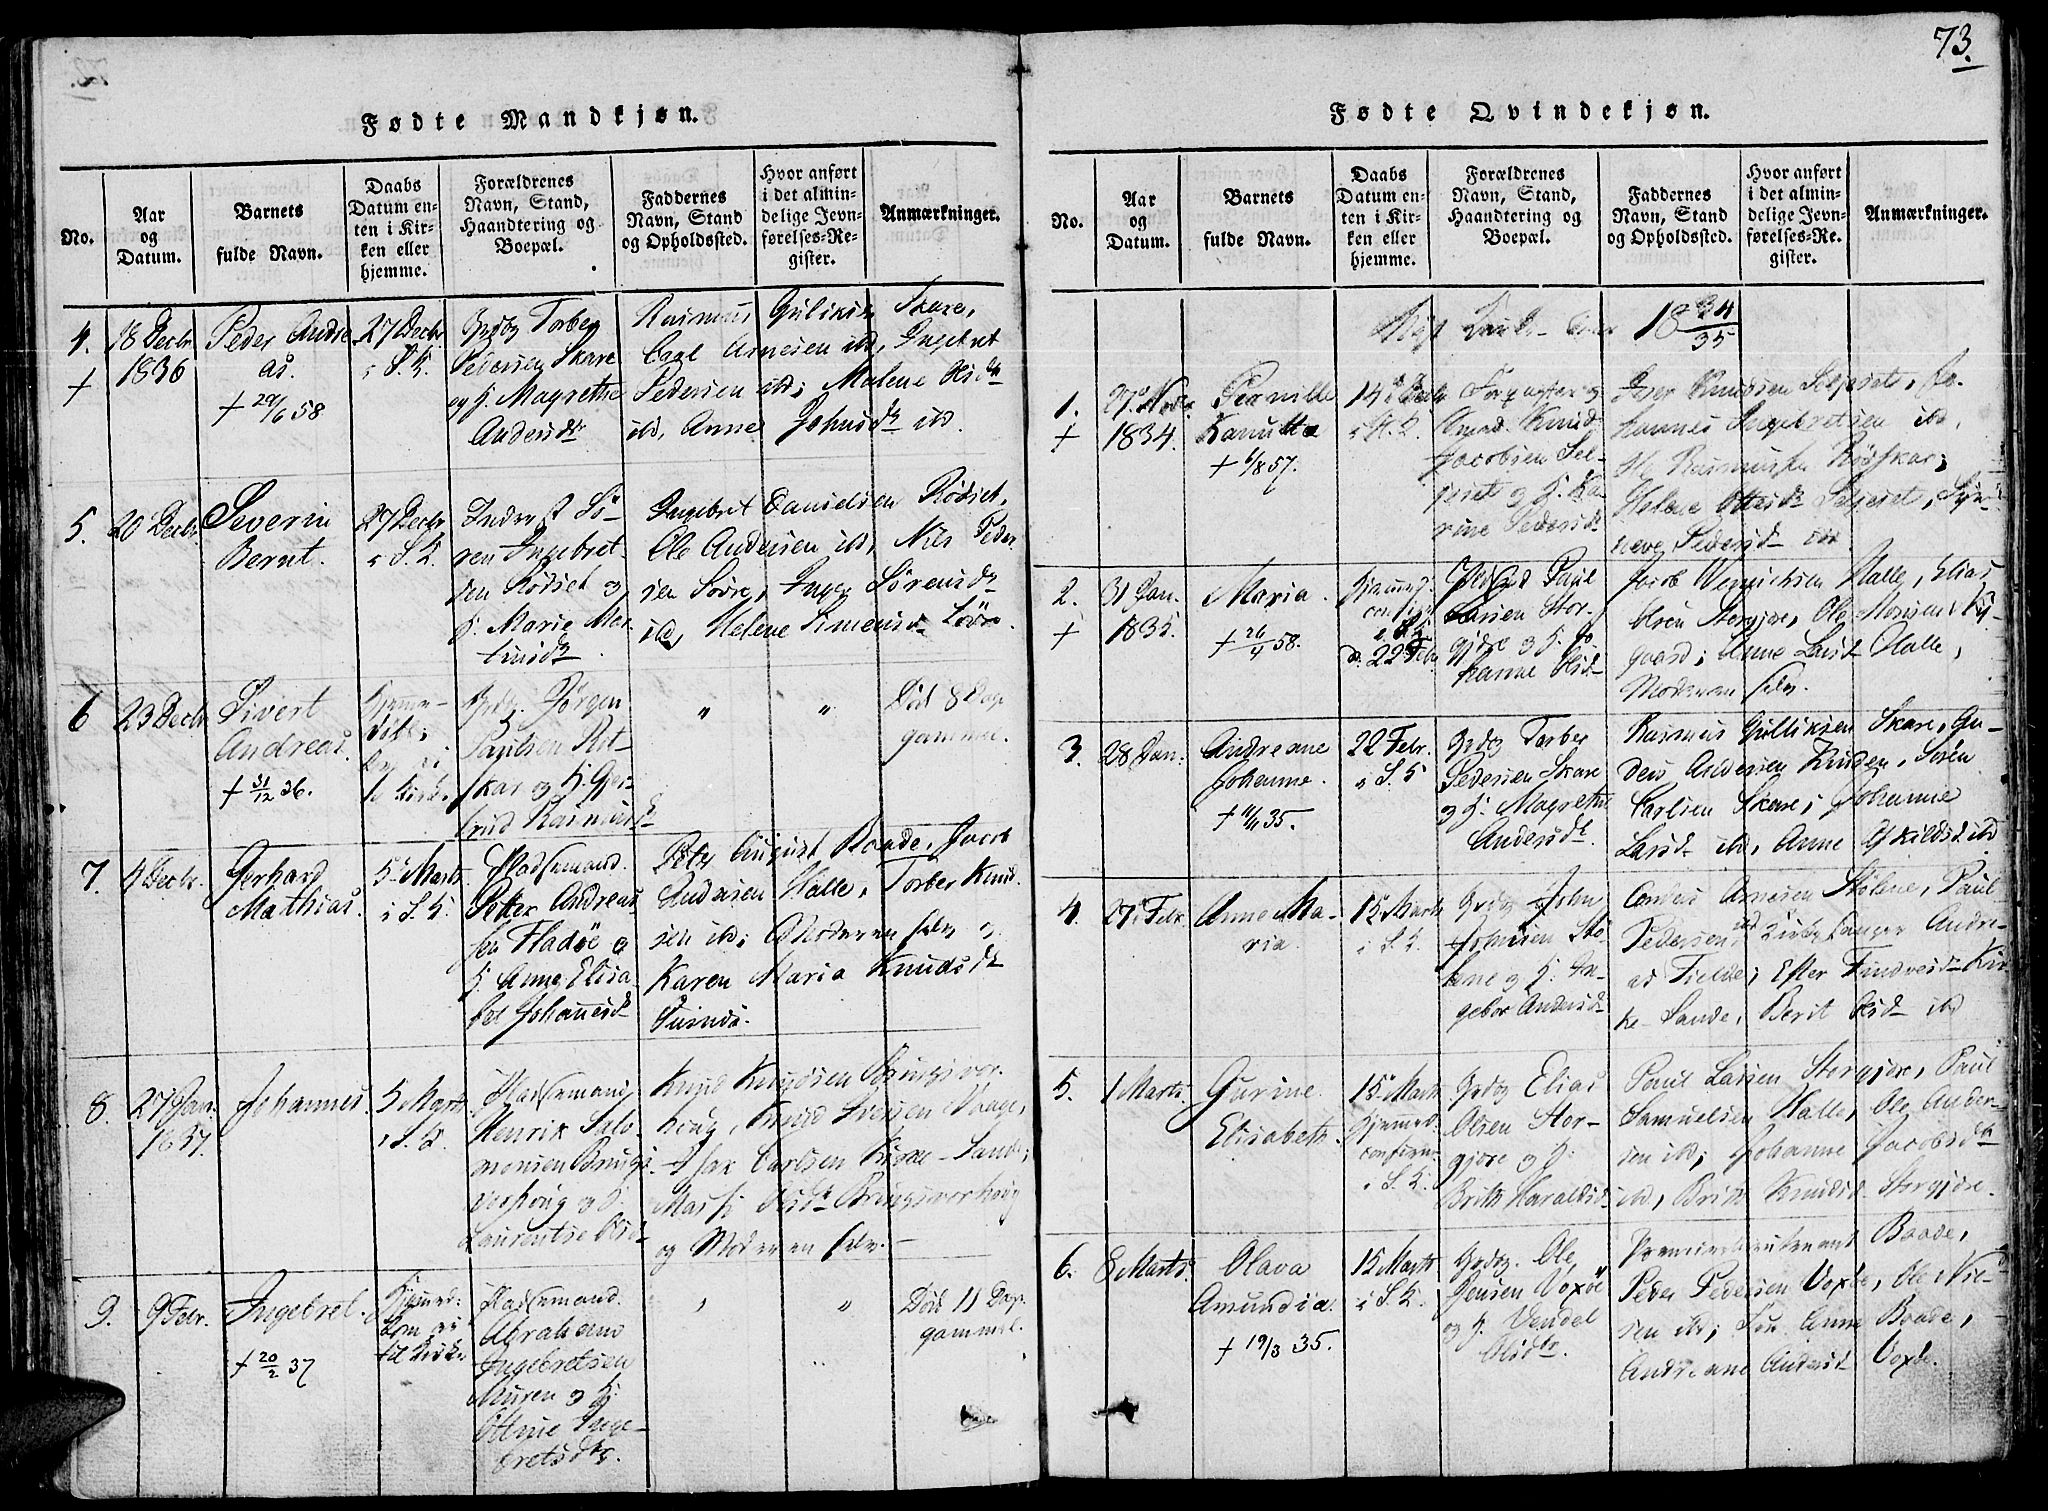 73.
Fødte Mandkjøn.
No.
Aar og Datum.
Barnets fulde Navn.
Daabs Datum enten i Kirken eller hjemme.
Forældrenes Navn, Stand, Haandtering og Boepæl.
Faddernes Navn, Stand og Opholdssted.
Hvor anført i det almindelige Jevnførelses-Register.
Anmærkninger.
4.
+
18 Decbr
1836
Peder Andre
as.
+ 29/6 58
27 Decbr
i S. K.
Grdbg Torber
Pedersen Skare
og H. Magrethe
Andersdr
Rasmus Guliksen Skare,
Carl Arnesen ibd, Ingebret
Pedersen ibd; Malene Olsdr
ibd, Anne Johnsdr ibd.
5.
20 Decbr
Severin
Bernt.
27 Decbr
i S. K.
Inderst Sø-
ren Ingebret-
sen Rødset og
H. Marie Mor-
tensdr
Ingebret Danielsen Rødset,
Ole Andersen ibd, Nils Peder-
sen Sovre, Inger Sørensdr
ibd, Helene Simensdr
6
23 Decbr
Sivert
Andreas.
+ 31/12 36.
Hjemme-
døbt;
Grdbg. Jørgen
Paulsen Rot-
skar og H. Ger-
trud Rasmusd
"
"
Død 8 Dage
gammel.
7.
4 Decbr.
Gerhard
Mathias.
5 Marts
i S. K.
Pladsemand.
Petter Andreas-
sen Fladøe og
H. Anne Elisa-
bet Johannesd
Peter August Baade, Jacob
Andersen Halle, Torber Knud-
sen ibd; Moderen selv og
Karen Maria Knudsdr
8.
27 Jan.
1837.
Johannes
5 Marts
i S. K.
Pladsemand
Henrik Salo-
monsen Brings-
vorhoug og H.
Laurentse Olsd
Knud Knudsen Bringsvor-
houg, Knud Iversen Vaage,
Isak Carlsen Kirke-Sande;
Olsdr Bringsvorhoug
og Moderen selv.
9.
9 Febr.
Ingebret.
+ 20/2 37
Hjemmed:
Kom ei
til Kirke
Pladsemand.
Abraham
Ingebretsen
Muren og H.
Ottine Inge-
bretsdr.
"
"
Død 11 Dage
gammel.
Fødte Qvindekjøn.
No.
Aar og Datum.
Barnets fulde Navn.
Daabs Datum enten i Kirken eller hjemme.
Forældrenes Navn, Stand, Haandtering og Boepæl.
Faddernes Navn, Stand og Opholdssted.
Hvor anført i det almindelige Jevnførelses-Register.
Anmærkninger.
18 34/35
1.
+
27. Novbr
1834.
Pernille
Kanutta
+ 6/8 57.
14 Decbr
Jacobsen Sel-
jeset og H. Ka-
rine Pedersd
Knudsen Seljeset,
Hannes Ingebretsen ibd,
Rasmussen Rødskar;
Helene Ottesdr Seljeset, Syn-
neve Pedersd ibd
2.
+
31 Jan.
1835.
Maria.
+ 26/4 58.
Hjemmed.
d. 22 Febr
Paul
Larsen Stor-
gjøre og H. Jo-
hanne Olsd
Jacob Halle, Elias
Olsen Storgjøre, Ole Monsen Ny-
gaard; Anne Larsd Halle,
Moderen selv.
3.
28 Jan.
Andreane
Johanne.
+ 11/4 35.
22 Febr.
i S. K
Grdbg Torber
Pedersen Skare
og H. Magrethe
Andersdr.
Rasmus Gulliksen Skare, Gu-
Andersen Knuden, Søren
Carlsen Skare; Johanne
Larsd ibd, Anne Eskildsd ibd
4.
27 Febr
Anne Ma-
ria.
15 Marts
i S. K.
Grdbg John
Johnsen Stø-
lene og H. In-
gebor Andersd
Anders Arnesen Stølene, Paul
Pedersen ibd, Kirkesanger Andre-
as Fielde; Ester Findvesd Kir-
ke-Sande, Berit Olsd ibd
5.
1 Marts.
Gurine
Elisabeth.
15 Marts
Hjemmed.
confirm.
i S. K.
Grdbg Elias
Olsen Stor-
gjøre og H.
Brith Haraldsd
Paul Larsen Storgjøre, Paul
Samuelsen Halle, Ole Ander-
sen ibd; Johanne Jacobsdr
ibd, Brith Knudsd Storgjøre.
6.
8 Marts.
Olava
Amundia.
+ 19/3 35.
15 Marts
i S. K.
Grdbg. Ole
Jensen Voxøe
og H. Vendel
Olsdr.
Premierlieutenant Baade,
Peder Pedersen Voxøe, Ole Niel-
sen ibd; Frn. Anne Baade,
Andreane Andersd Voxøe.